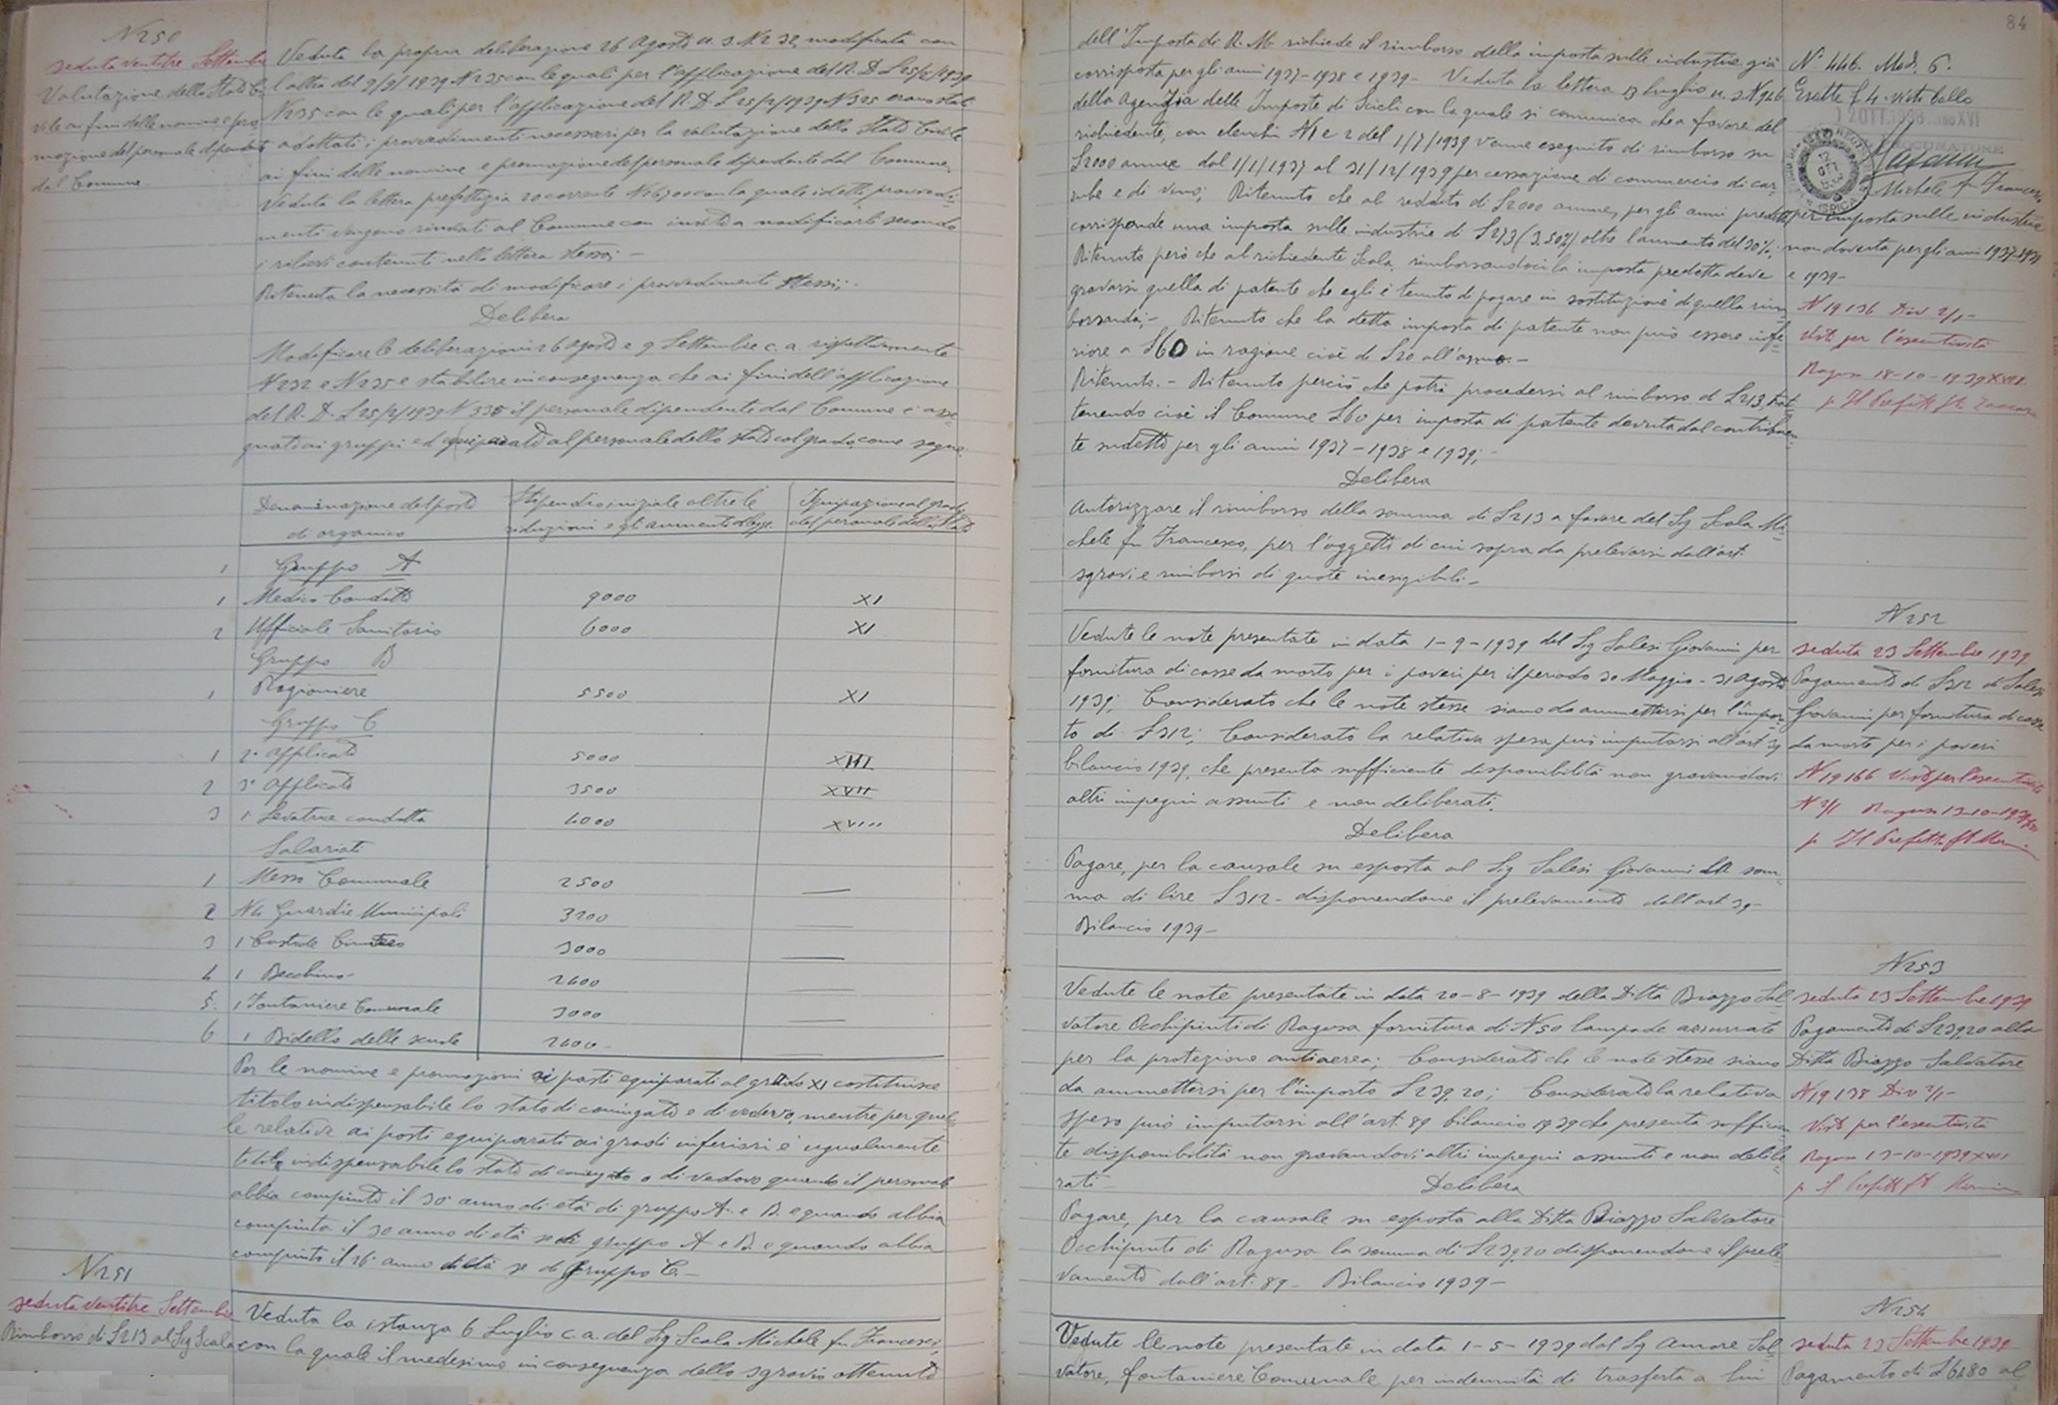 N 250
seduta ventitre Settembre
Valutazione dello Stato Ci-
vile ai fini delle nomine e pro
mozione del personale dipendente
dal Comune
Veduta la propria deliberazione 26 Agosto u. s. N 232 modificata con
l'altra del 9/9/1939 N 235 con le quali per l'applicazione del R. D. L 25/2/1939
N 235 con le quali per l'applicazione del R. D. L 25/2/1939 N 335 erano stati
adottati i provvedimenti necessari per la valutazione dello Stato Civile
ai fini delle nomine e promozione del personale dipendente dal Comune
Veduta la lettera prefettizia 20 corrente con la quale i detti provvedi-
menti vengono rinviati al Comune con invito a modificarli secondo
i rilievi contenuti nella lettera stessa; -
Ritenuta la necessità di modificare i provvedimenti stessi;
Delibera
Modificare le deliberazioni 26 Agosto e 9 Settembre c. a. rispettivamente
N 232 e N 235 e stabilire in conseguenza che ai fini dell'applicazione
del R. D. L 25/2/1939 N 335 il personale dipendente dal Comune è asse
gnato ai gruppi ed equiparato al personale dello Stato col grado come segue
Denominazione del posto
di organico
Stipendio iniziale oltre le
riduzioni e gli aumenti di legge
Equiparazione al grado
del personale dello Stato
1 Gruppo A
1 Medico Condotto 9000 XI
2 Ufficiale Sanitario 6000 XI
Gruppo B
1 Ragioniere 5500 XI
Gruppo C
1 2° Applicato 5000 XIII
2 3° Applicato 3500 XVII
3 1 Levatrice condotta 4000 XVIII
Salariati
1 Messo Comunale 2500
2 N 4 Guardie Municipali 3200
3 1 Custode Cimitero 3000
4 1 Becchino 2400
5 1 Fontaniere Comunale 3000
6 1 Bidello delle scuole 2400
Per le nomine e promozioni ai posti equiparati al grado XI costituisce
titolo indispensabile lo stato di coniugato e di vedovo, mentre per quel-
le relative ai posti equiparati ai gradi inferiori è ugualmente
titolo indispensabile lo stato di coniugato o di vedovo quando il personale
abbia compiuto il 30° anno di età di gruppo A e B e quando abbia
compiuto il 30 anno di età se di gruppo A e B e quando abbia
compiuto il 26 anno di età se di Gruppo C. -
N 251
seduta ventitre Settembre
Rimborso di L 213 al Sig Scala
Veduta la istanza 6 Luglio c. a. del Sig Scala Michele fu Francesco,
con la quale il medesimo in conseguenza dello sgravio ottenuto
84
dell'Imposta di R. M. richiede il rimborso della imposta sulle industrie già
corrisposta per gli anni 1937-1938 e 1939 - Veduta la lettera 13 luglio u. s. N 946
della Agenzia delle Imposte di Scicli con la quale si comunica che a favore del
richiedente, con elenchi N 1 e 2 del 1/7/1939 venne eseguito di rimborso su
L 2000 annue dal 1/1/1937 al 31/12/1939 per cessazione di commercio di car
rube e di vino; Ritenuto che al reddito di L 2000 annue, per gli anni predetti
corrisponde una imposta sulle industrie di L 273 (3.50%) oltre l'aumento del 30%;
Ritenuto però che al richiedente Scala, rimborsandosi la imposta predetta deve
gravarsi quella di patente che egli è tenuto di pagare in sostituzione di quella rim
borsanda; - Ritenuto che la detta imposta di patente non può essere infe-
riore a L 60 in ragione cioè di L 20 all'anno. -
Ritenuto. - Ritenuto perciò che potrà procedersi al rimborso di L 213, trat-
tenendo cioè il Comune L 60 per imposta di patente dovuta dal contribuen-
te sudetto per gli anni 1937 - 1938 e 1939; -
Delibera
Autorizzare il rimborso della somma di L 213 a favore del Sig Scala Mi-
chele fu Francesco, per l'oggetto di cui sopra da prelevarsi dall'art.
sgravi e rimborsi di quote inesigibili -
N° 446. Mod. 6.
Esatte £ 4. visto bollo
Michele fu Francesco
per imposta sulle industrie
non dovuta per gli anni 1937-1938
e 1939 -
N 19136 Div 2/1 -
Visto per l'esecutività
Ragusa 18-10-1939 XVII
p Il Prefetto
Vedute le note presentate in data 1-9-1939 del Sig Salesi Giovanni per
fornitura di casse da morto per i poveri per il periodo 30 Maggio - 31 Agosto
1939; Considerato che le note stesse siano da ammettersi per l'impor-
to di L 312; Considerato la relativa spesa può imputarsi all'art 39
bilancio 1939, che presenta sufficiente disponibilità non gravandovi
altri impegni assunti e non deliberati.
Delibera
Pagare, per la causale su esposta al Sig Salesi Giovanni la som-
ma di lire L 312 - disponendone il prelevamento dall'art 39 -
Bilancio 1939 -
N 252
seduta 23 Settembre 1939
Pagamento di L 312 di Salesi
Giovanni per fornitura di casse
da morto per i poveri
N 19166 Visto per l'esecutività
N 2/1 Ragusa 13-10-1939
p Il Prefetto
Vedute le note presentate in data 20-8-1939 della Ditta Biazzo Sal
vatore Occhipinti di Ragusa fornitura di N 50 lampade azzurrate
per la protezione antiaerea; Considerato che le note stesse siano
da ammettersi per l'importo L 239,20; Considerato la relativa
spesa può imputarsi all'art. 89 bilancio 1939 che presenta sufficien
te disponibilità non gravandovi altri impegni assunti e non delibe
rati
Delibera
Pagare, per la causale su esposta alla Ditta Biazzo Salvatore
Occhipinti di Ragusa la somma di L 239,20 disponendone il prele
vamento dall'art. 89 - Bilancio 1939 -
N 253
seduta 23 Settembre 1939
Pagamento di L 239,20 alla
Ditta Biazzo Salvatore
N 19138 Div 2/1 -
Visto per l'esecutività
Ragusa 13-10-1939 XVII
p il Prefetto
Vedute le note presentate in data 1-5-1939 dal Sig Amore Sal
vatore, fontaniere Comunale per indennità di trasferta a lui
N 254
seduta 23 Settembre 1939
Pagamento di L 64,80 al